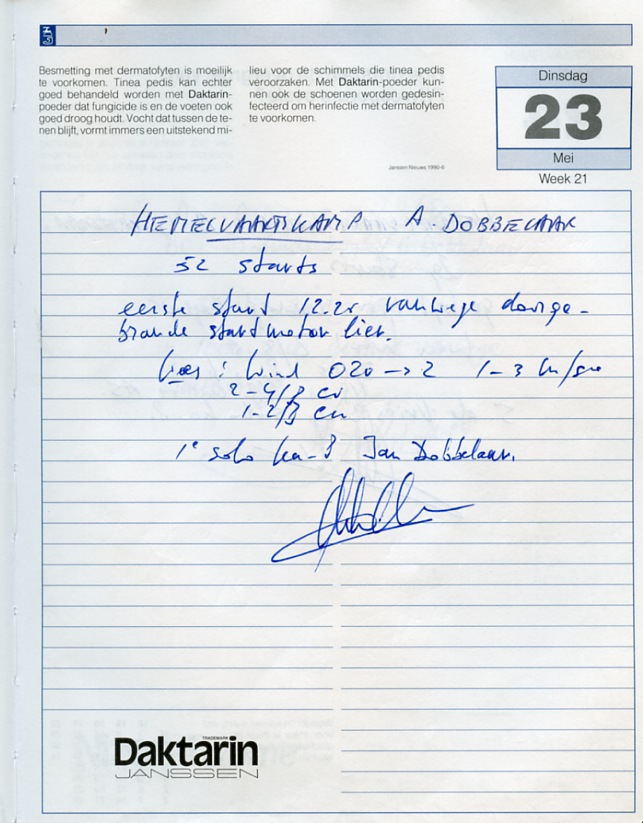 Besmetting met dermatofyten is moeilijk
te voorkomen. Tinea pedis kan echter
goed behandeld worden met Daktarin-
poeder dat fungicide is en de voeten ook
goed droog houdt. Vocht dat tussen de te-
nen blijft, vormt immers een uitstekend mi-
lieu voor de schimmels die tinea pedis
veroorzaken. Met Daktarin-poeder kun-
nen ook de schoenen worden gedesin-
fecteerd om herinfectie met dermatofyten
te voorkomen.
Janssen Nieuws 1990-6
Dinsdag
23
Mei
Week 21
HEMELVAARTSKAMP A. DOBBELAAR
52 starts
eerste start 12.20 vanwege doorge-
brande startmotor lier.
Wind 020 → 2 1-3 m/sec
2-4/8 cu
1-2/8 cu
1e solo Ka-8 Jan Dobbelaar.
TRADEMARK
Daktarin
JANSSEN